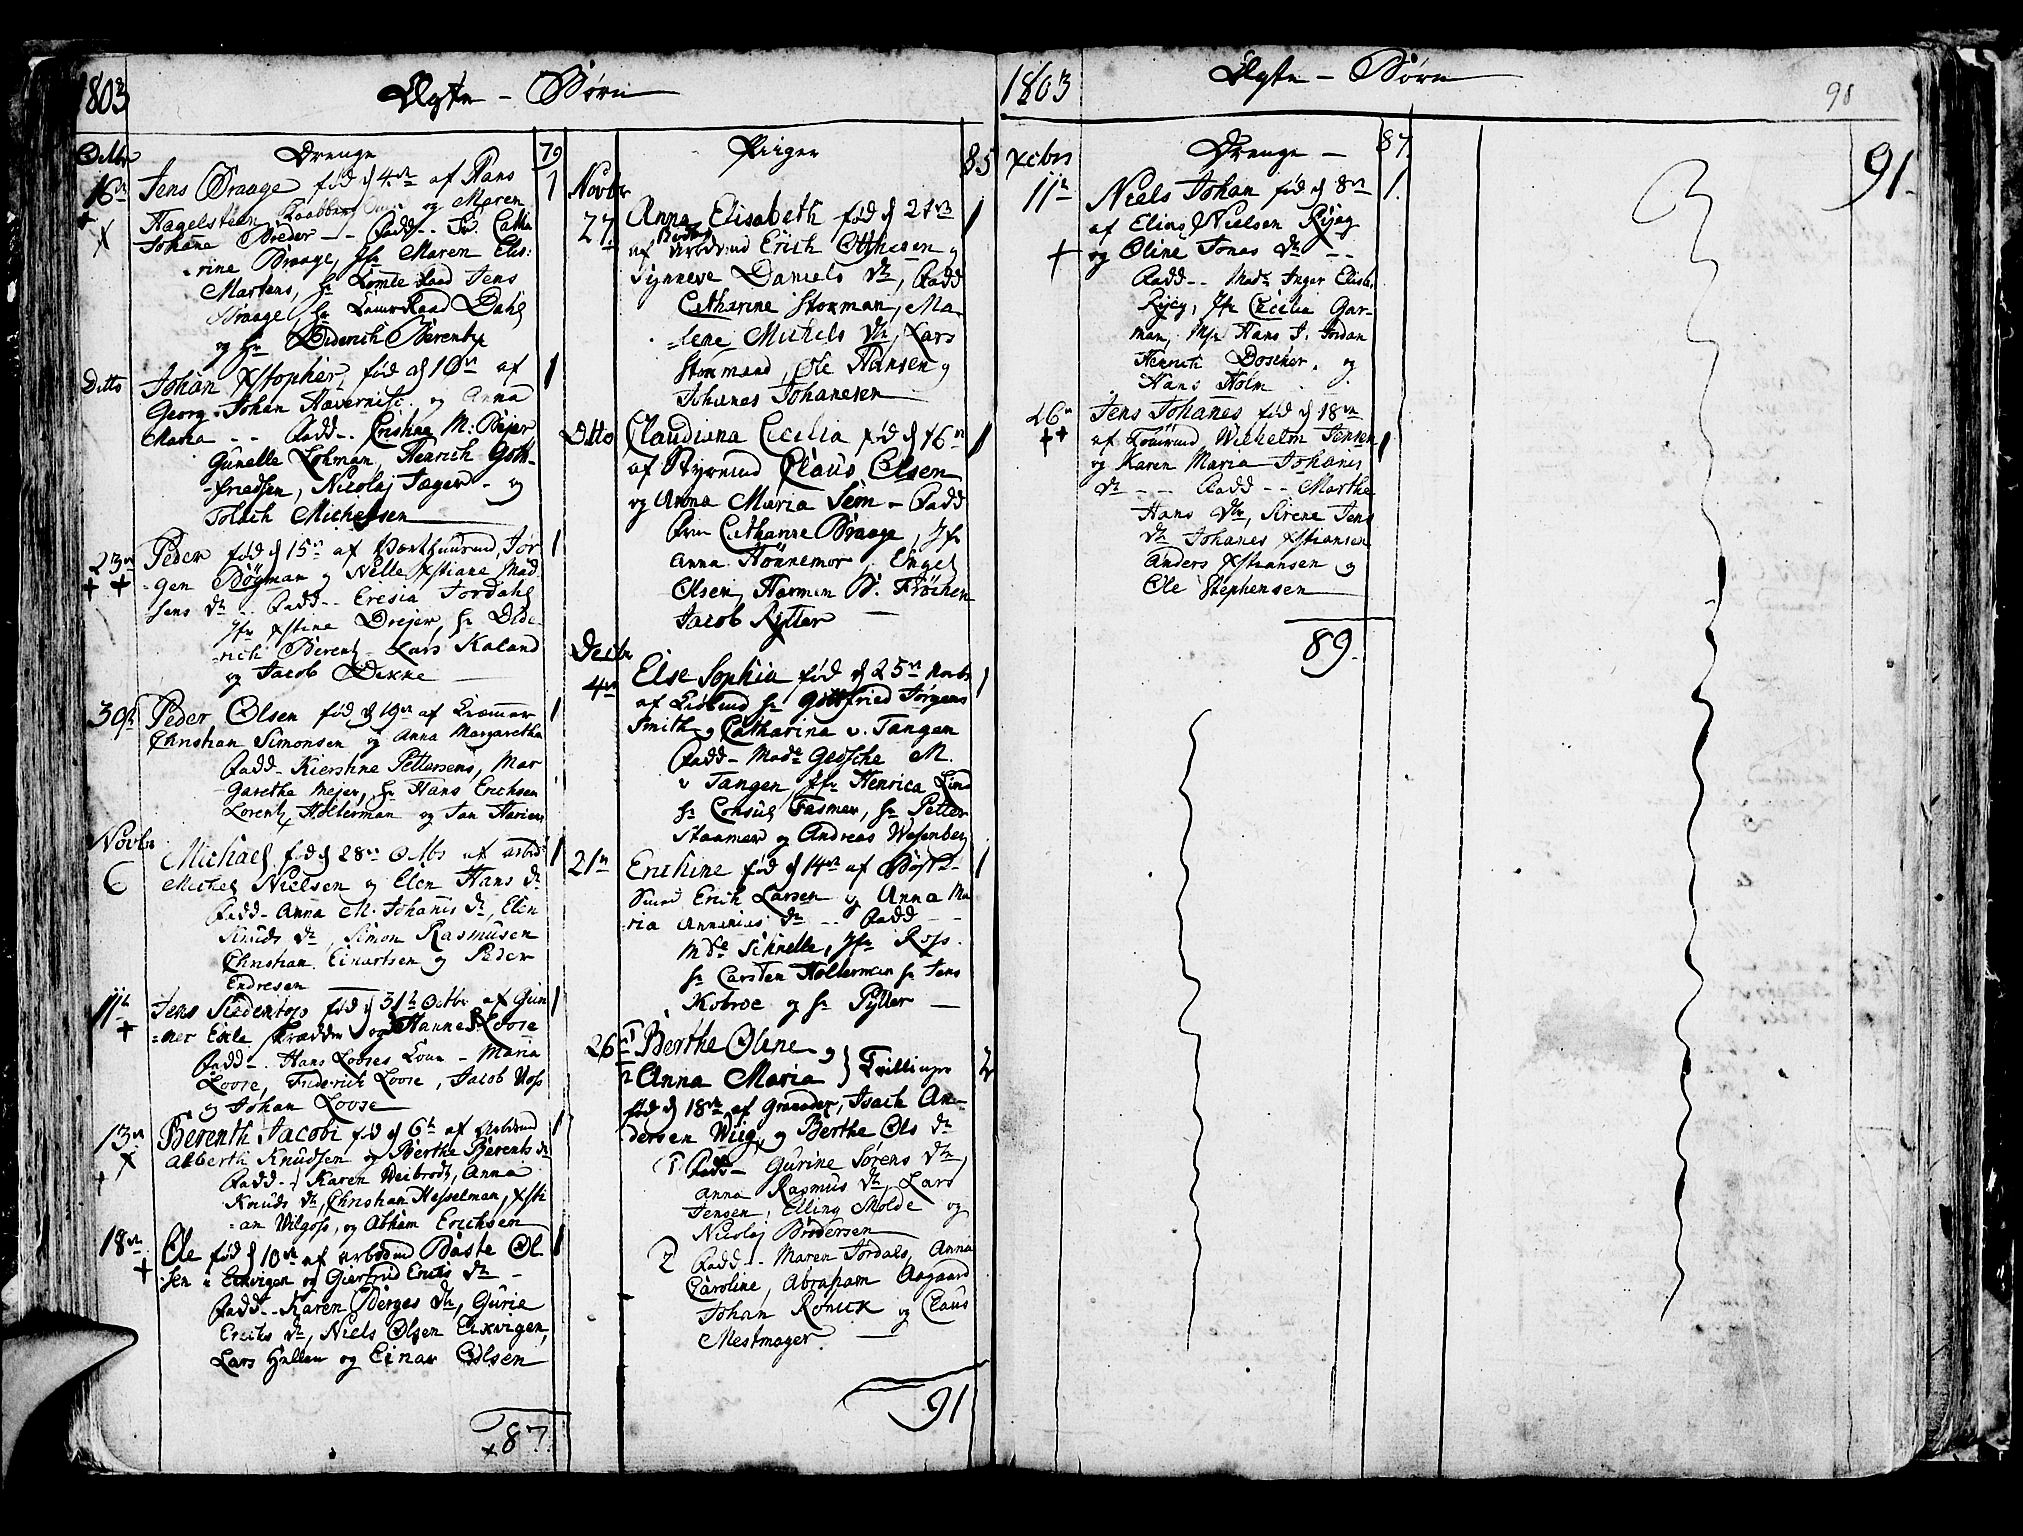 1803
Ægte - Børn
Octbr
Drenge
79
16de
Jens Braage fød d 4de af Hans
1
Hagelsteen og Maren
Johana Breder -- Fadd-- Cathe
rine Braage, Jfr Maren Elis:
Martens, Hr Raad Jens
Braage, Hr Raad Dahl
og Hr Diderich Berentz
Ditto
Johan Xstopher, fød d 16de af
1
Georg Johan Havernist. og Anna
Maria -- Fadd-- Cristine M: Beyer
Gunelle Lohman, Henrich Gott-
friedsen, Nicolaj Jæger - og
Tolach Michelsen
23de
Peder fød d 15de af Jør
1
gen Bögman og Nille Xstiane Mad
sens Dr. Fadd-- Cresia Jordahl
Jfr Xstine Drejer, Hr Dide
rich Berentz - Lars Kaland
og Jacob Dekke
30te
Peder Olsen fød d 19de af Kræmmer
1
Christian Simonsen og Anna Margaretha
Fadd- Kierstine Pettersens, Mar
garetha Mejer, Hr Hans Erichsen
Lorentz Holterman og Jan Hariens
Novbr
6
Michael fød d 28de Octbr af arbd
1
Michel Nielsen og Elen Hans Dr
Fadd- Anna M. Johanis Dr, Elen
Knuds Dr, Simon Rasmusen
Christian Einartsen og Peder
Endresen
11te
Jens Siedentop fød d 31te Octbr af Gun
1
ner Eide Skrædder og Hanne Loose
Fadd-. Hans Looses Kone - Maria
Loose, Friderich Loose, Jacob Voss
og Johan Loose
13de
Berenth Jacobi fød d 6te af Arbdmd
1
Alberth Knudsen og Berthe Berents Dr
Fadd-. Karen Weibrodt, Anna
Knuds Dr, Christian Hesselman, Xsti
an Wilgoss, og Abham Erichsen
18de
Ole fød d 10de af Arbdmd Baste Ol
1
sen i Eikvigen og Giertrud Erichs Dr -
Fadd-. Karen Berges Dr, Gurie
Erichs Dr, Niels Olsen Eikvigen,
Lars Hellen og Einar Olsen
87.
Piiger
85
Novbr
27
Anna Elisabeth fød d 21de
1
af Arbdsmd Erich Otthesen og
Synneve Daniels Dr, Fadd
Catharine Storman, Ma
lene Michels Dr, Lars
Stormand, Ole Hansen og
Johanas Johanesen
Ditto
Claudiana Cecilia fød d 16de
1
af Styrmd Claus Olsen
og Anna Maria Sem - Fadd
Frue Catharine Braage, Jfr
Anna Hönnemor, Engel
Olsen, Harmen B. Fröchen
Jacob Rytter
Decbr
4de
Else Sophia fød d 25de Novbr
1
af Kiøbmd Hr Gottfried Jörgens
Smith og Catharina v. Tangen
Fadd- Made Gesche M.
v Tangen, Jfr Henrica Lind
Hr Consul Fasmer, Hr Petter
Staamer og Andreas Wesenberg
21de
Erichine fød d 14de af
1
Smed Erich Larsen og Anna Ma
ria Annanias Dr -- Fadd --
Mde Schnelle, Jfr Ross.
Hr Carsten Holterman Hr Jens
Kobroe og Hr Pytter
26
1 Berthe Oline og
2 Anna Maria } Tvillinger
2
fød d 18de af Granader, Isach An-
dersen Wiig, og Berthe Ols Dr
1 Fadd- Gurine Sörens Dr,
Anna Rasmus Dr, Lars
Jensen, Elling Molde og
Nicolaj Brödersen
2 Fadd-. Maren Jordals, Anna
Caroline, Abraham Aagaard
Johan Rönick og Claus
Mestmager
91
1803
Ægte - Børn
90
Xcbrs
Drenge -
87
91.
11te
Niels Johan fød d 8de
1.
af Elias Nielsen Ryeg
og Oline Jonas Dr --
Fadd-- Made Inger Elisb.
Ryeg, Jfr Cecilia Gar-
man, Mr Hans J. Jordan
Henrich Doscher, og
Hans Holm
26de
Jens Johanes fød d 18de
af Wilhelm Jensen
1
og Karen Maria Johanis
Dr --- Fadd -- Marthe
Hans Dtr, Sirene Jens
Dr Johanes Xstiansen
Anders Xstiansen og
Ole Stephensen
89.